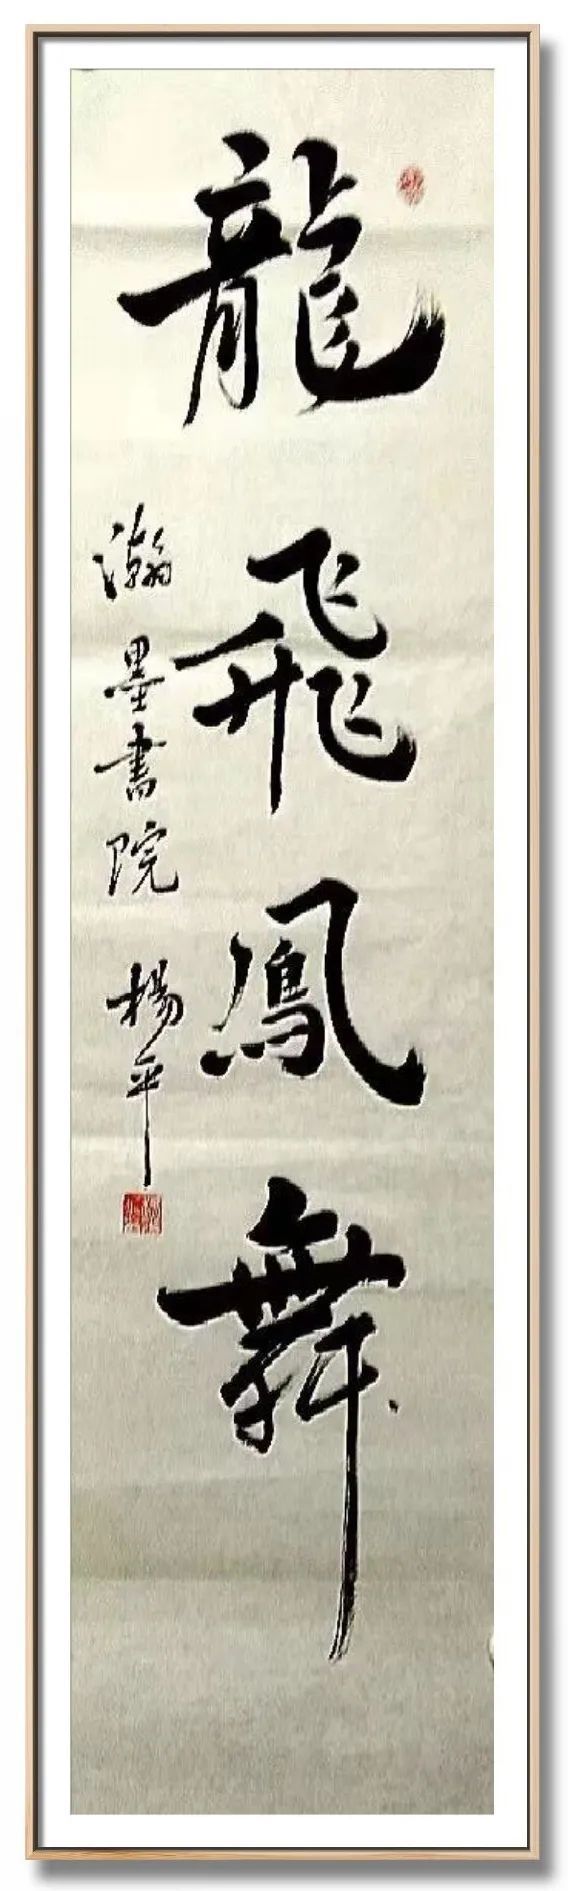 龍飛鳳舞
瀚墨書院 楊平